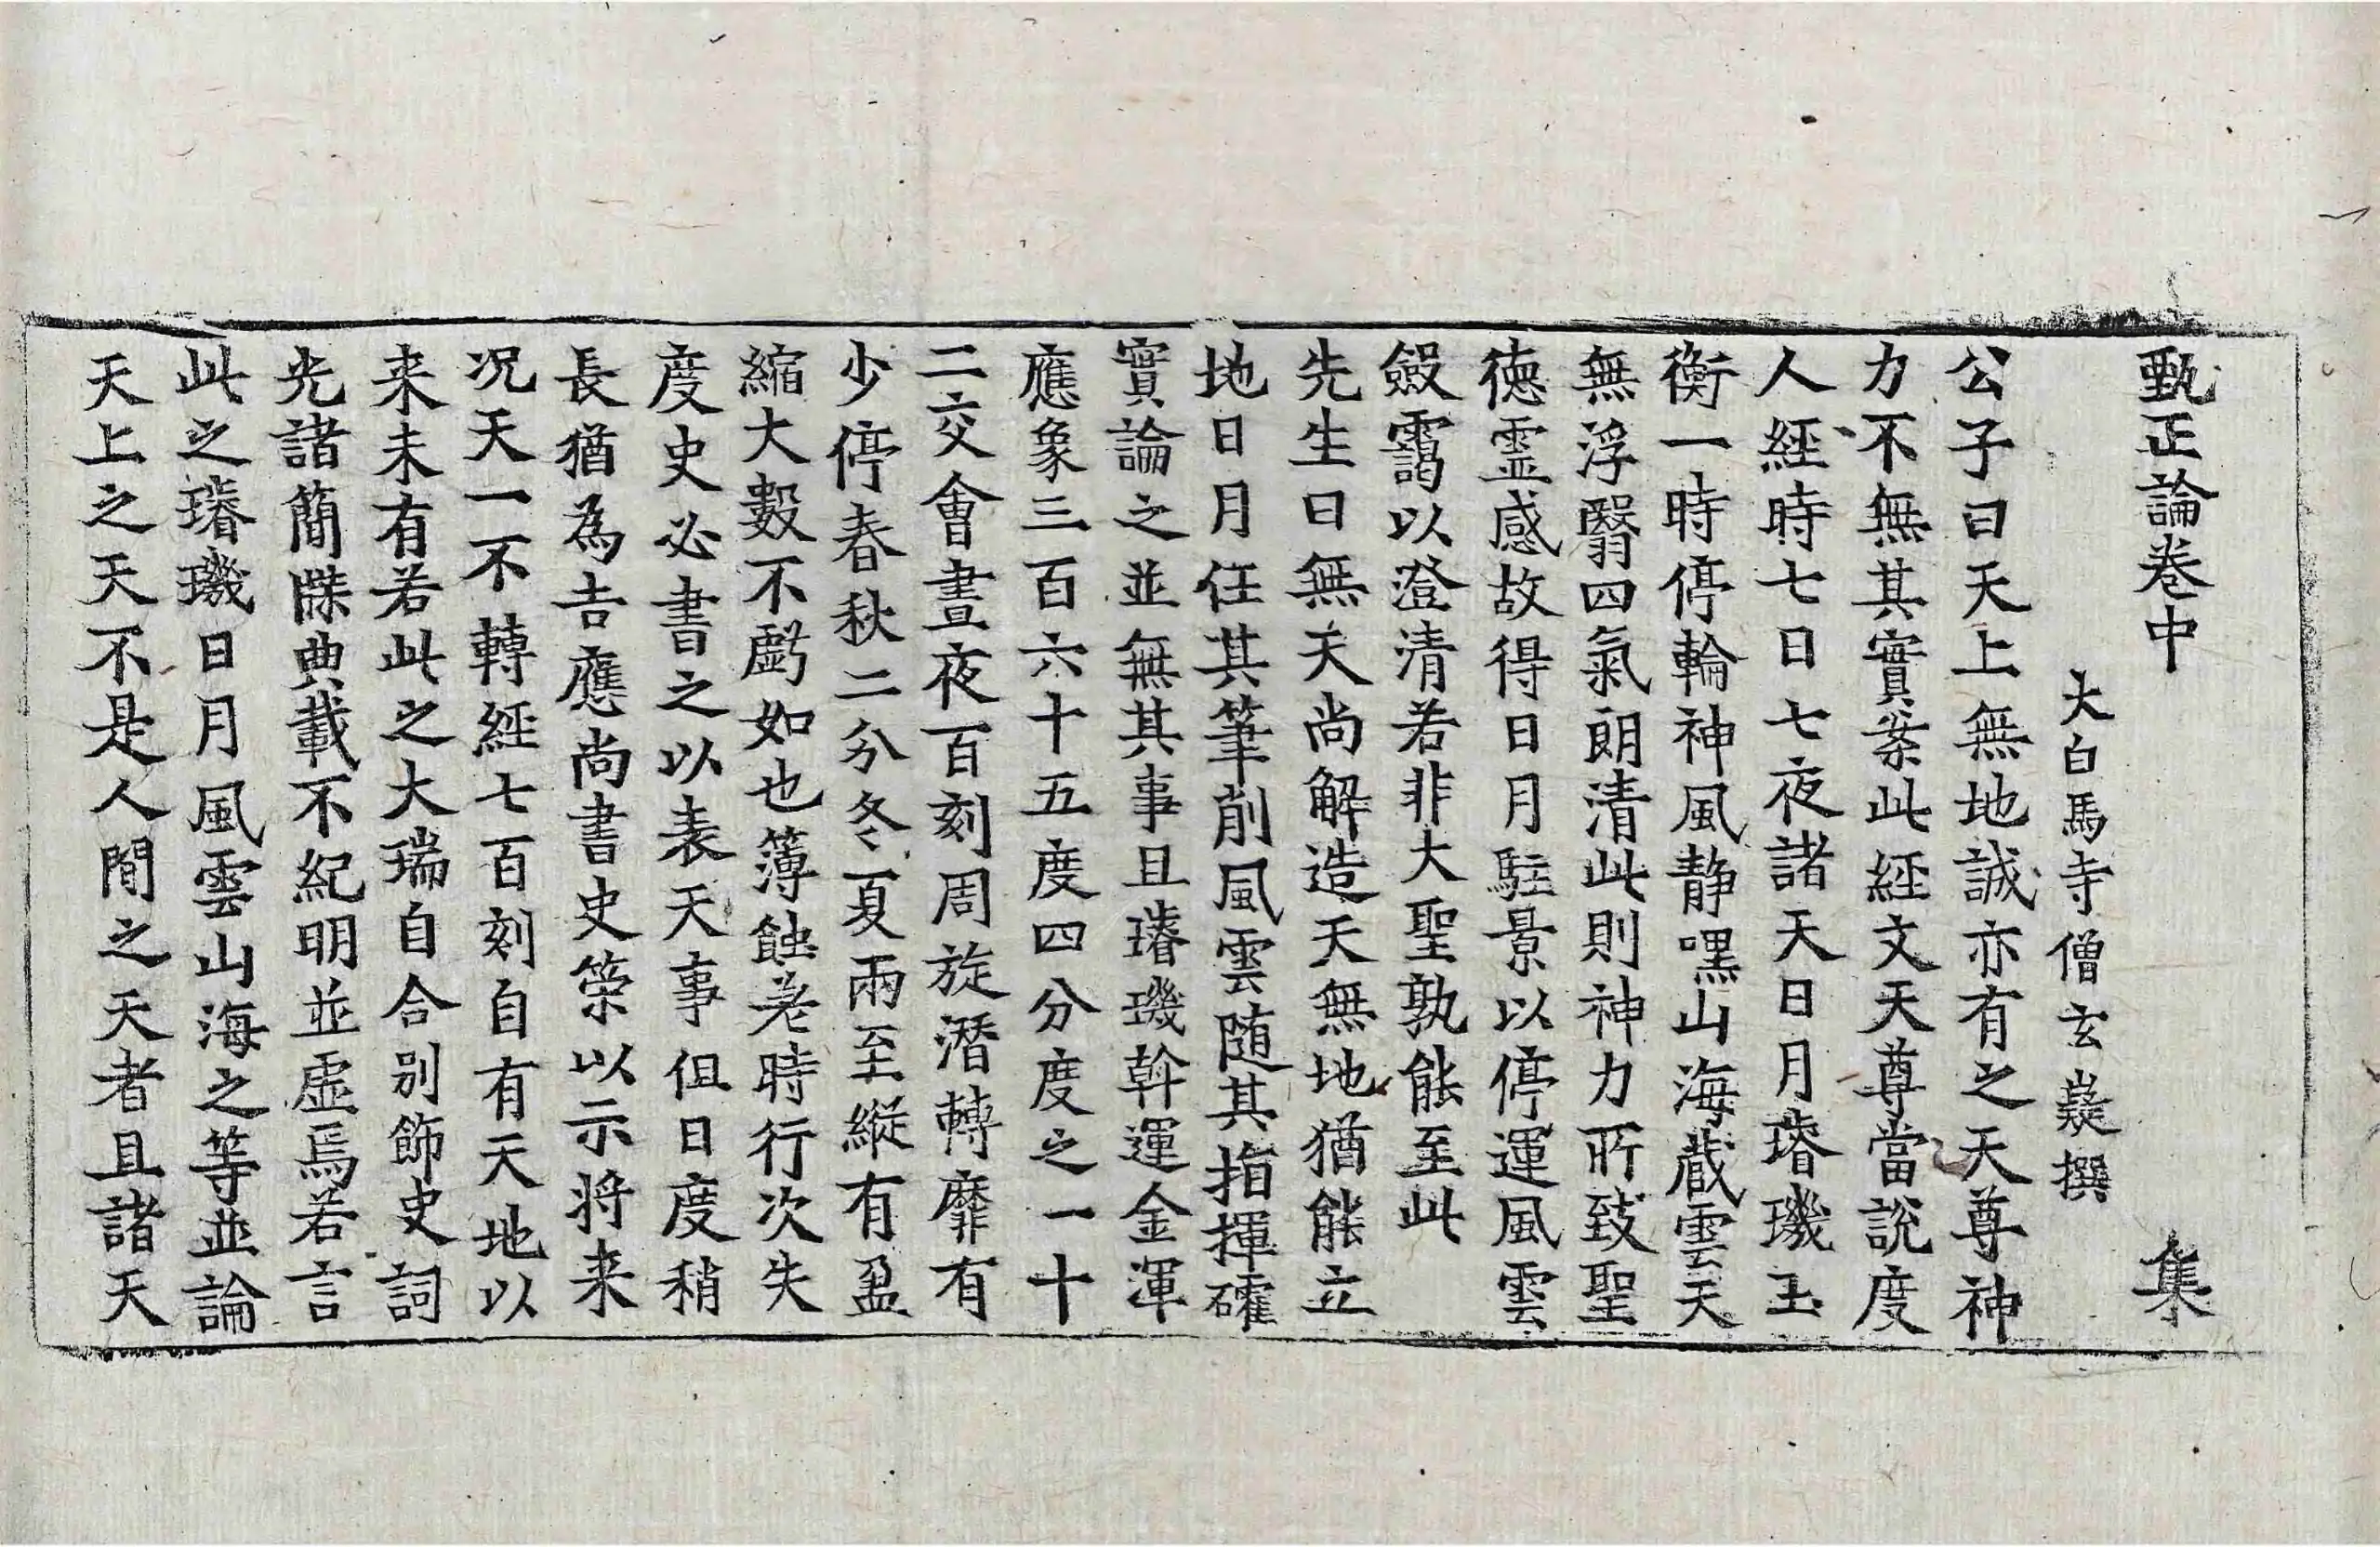 甄正論卷中　集
大白馬寺僧玄嶷撰
公子曰天上無地誠亦有之天尊神
力不無其實案此経文天尊當說度
人経時七日七夜諸天日月璿璣玉
衡一時停輪神風静嘿山海蔵雲天
無浮翳四氣朗清此則神力所致聖
徳霊感故得日月駐景以停運風雲
斂靄以澄清若非大聖孰能至此
先生曰無天尚解造天無地猶能立
地日月任其筆削風雲随其指揮確
實論之並無其事且璿璣斡運金渾
應象三百六十五度四分度之一十
二交會晝夜百刻周旋潛轉靡有
少停春秋二分冬夏兩至縦有盈
縮大數不虧如也簿蝕差時行次失
度史必書之以表天事伹日度稍
長猶為吉應尚書史策以示將来
况天一不轉経七百刻自有天地以
来未有若此之大瑞自合別飾史詞
光諸簡牒典載不紀明並虛焉若言
此之璿璣日月風雲山海之等並論
天上之天不是人間之天者且諸天